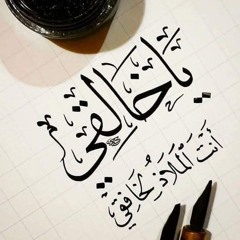 يا خالقي
أنت الملاذ لخافقي